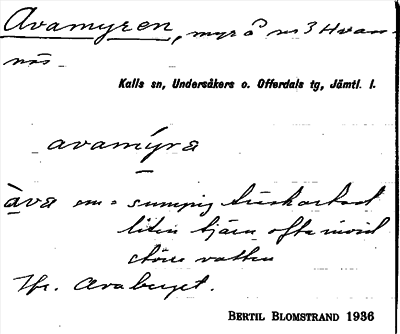 Avamyren, myr å nr 3 Hvan-
näs
Kalls sn, Undersåkers o. Offerdals tg, Jämtl. l.
avamýra
àva em = sumpig
liten tjärn ofta invid
större vatten
Jfr. Avaberget.
BERTIL BLOMSTRAND 1936